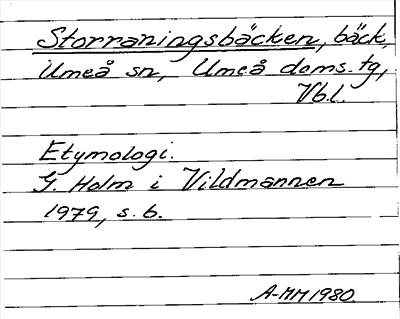 Storraningsbäcken, bäck,
Umeå sn, Umeå doms. tg,
Vbl.
Etymologi.
G. Holm i Vildmannen
1979, s. 6.
A-MM 1980.